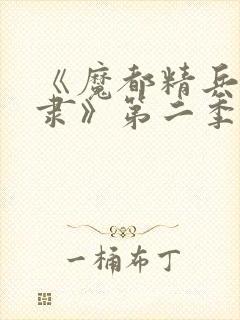 《魔都精兵
隶》第二季
一桶布丁